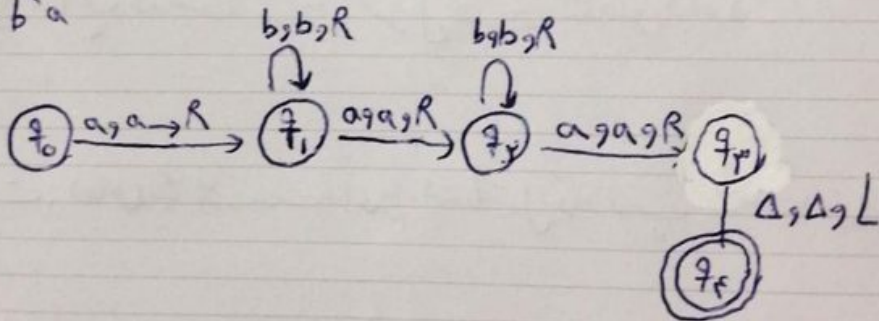 b a
b,b,R b,b,R
q₀ a,a→R q₁ a,a,R q₂ a,a,R q₃
Δ,Δ,L
q₄